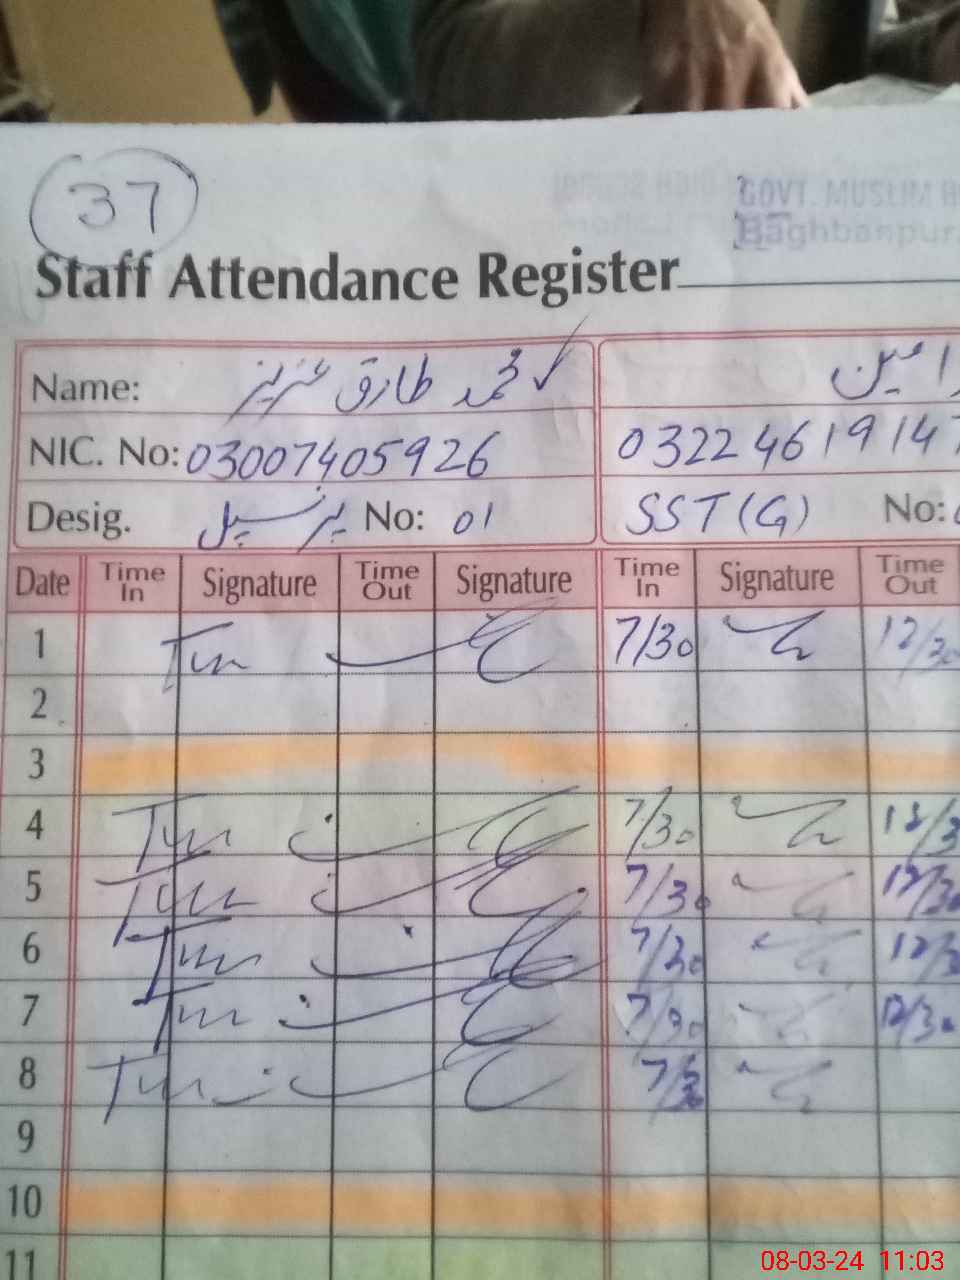 37
GOVT. MUSLIM H
Baghbanpur
Staff Attendance Register
Name: محمد طارق عزیز
امین
NIC. No: 03007405926 0322 4619147
Desig. پرنسپل No: 01 SST (G) No:
Date Time In Signature Time Out Signature Time In Signature Time Out
1 7/30 12/30
2
3
4 7/30 12/3
5 7/30 12/30
6 7/30 12/3
7 7/30 12/30
8 7/30
9
10
11
08-03-24 11:03